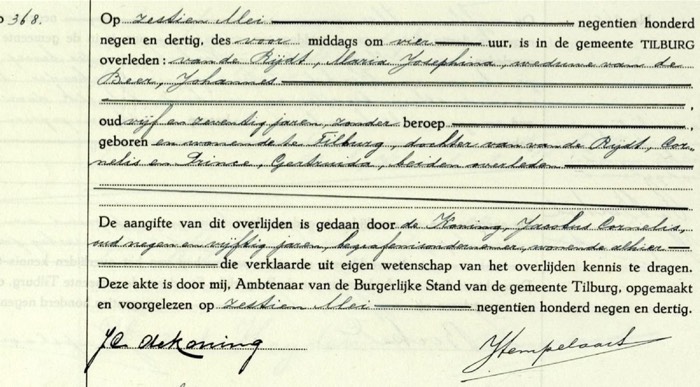 368.
Op zestien Mei negentien honderd
negen en dertig, des voor middags om vier uur, is in de gemeente TILBURG
overleden: van de Rijdt, Maria Josephina, weduwe van de
Beer, Johannes
oud vijf en zeventig jaren, zonder beroep,
geboren en wonende te Tilburg, dochter van van de Rijdt, Cor-
nelis en Prince, Gertruida, beiden overleden
De aangifte van dit overlijden is gedaan door de Koning, Jacobus Cornelis,
oud negen en vijftig jaren, begrafenisondernemer, wonende alhier
die verklaarde uit eigen wetenschap van het overlijden kennis te dragen.
Deze akte is door mij, Ambtenaar van de Burgerlijke Stand van de gemeente Tilburg, opgemaakt
en voorgelezen op zestien Mei negentien honderd negen en dertig.
JC de Koning